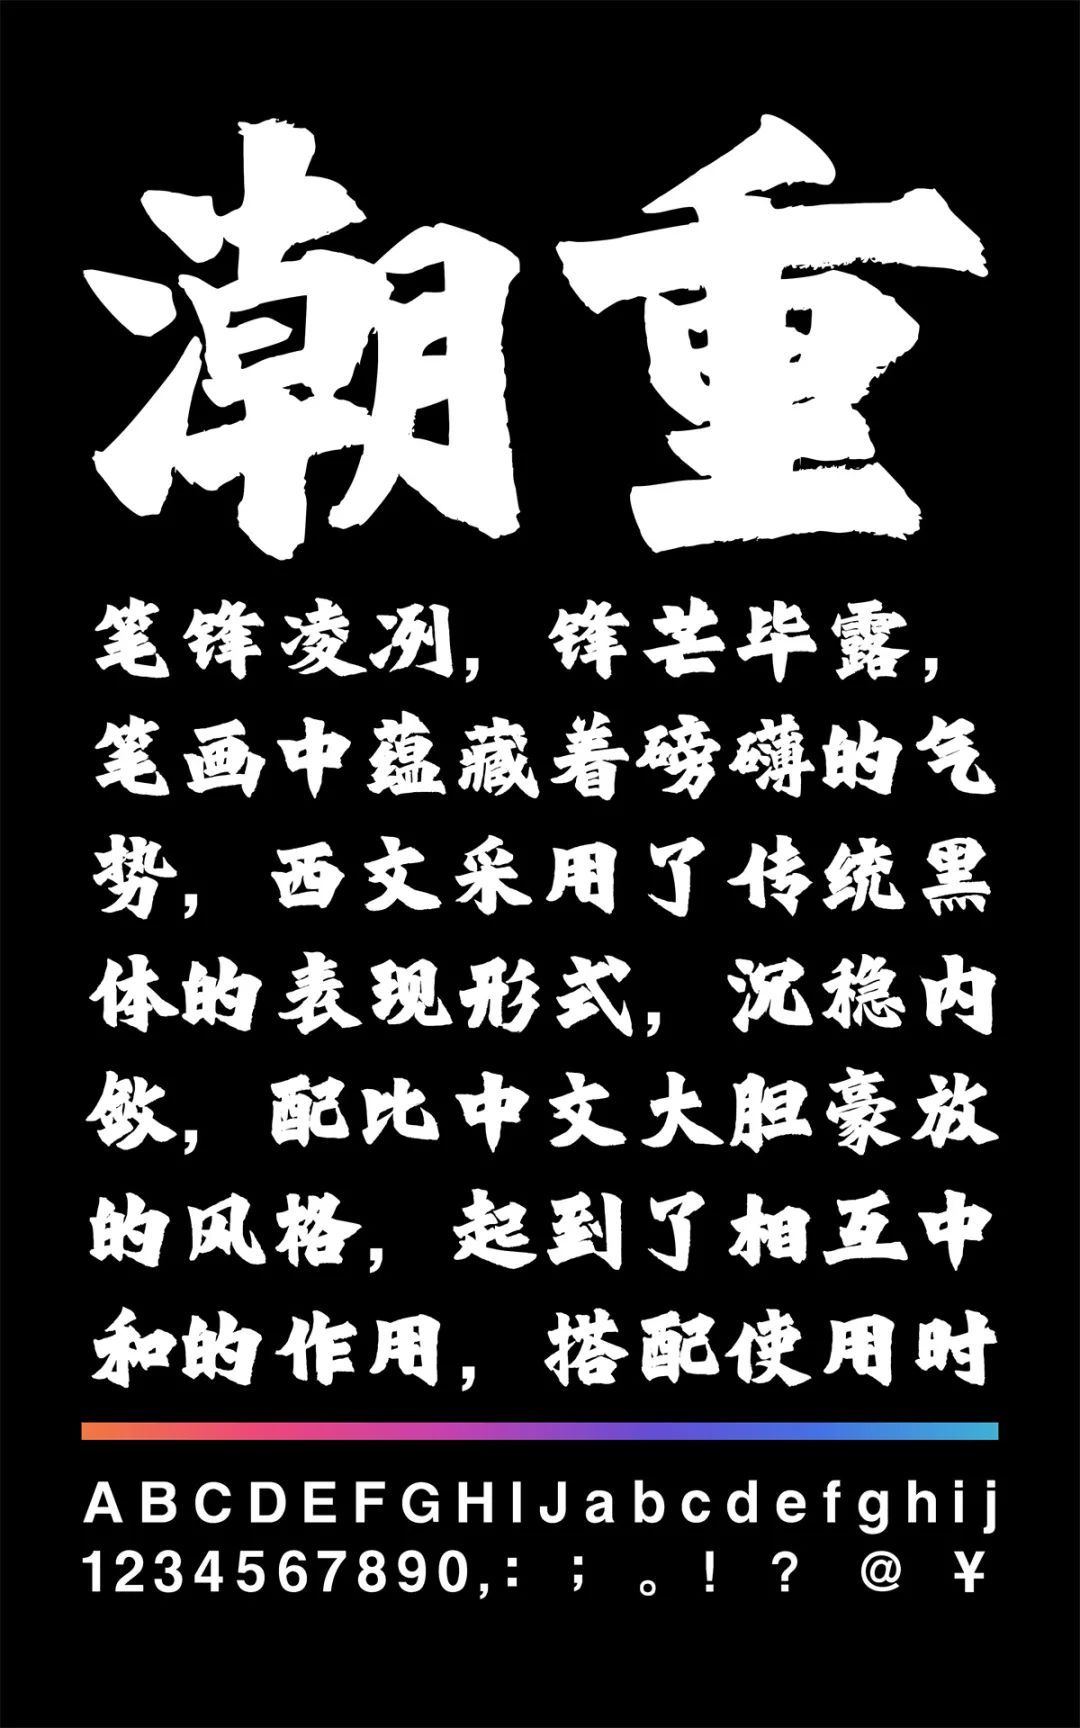 潮重
笔锋凌冽，锋芒毕露，
笔画中蕴藏着磅礴的气
势，西文采用了传统黑
体的表现形式，沉稳内
敛，配比中文大胆豪放
的风格，起到了相互中
和的作用，搭配使用时
ABCDEFGHIJabcdefghij
1234567890,：；。！？@¥